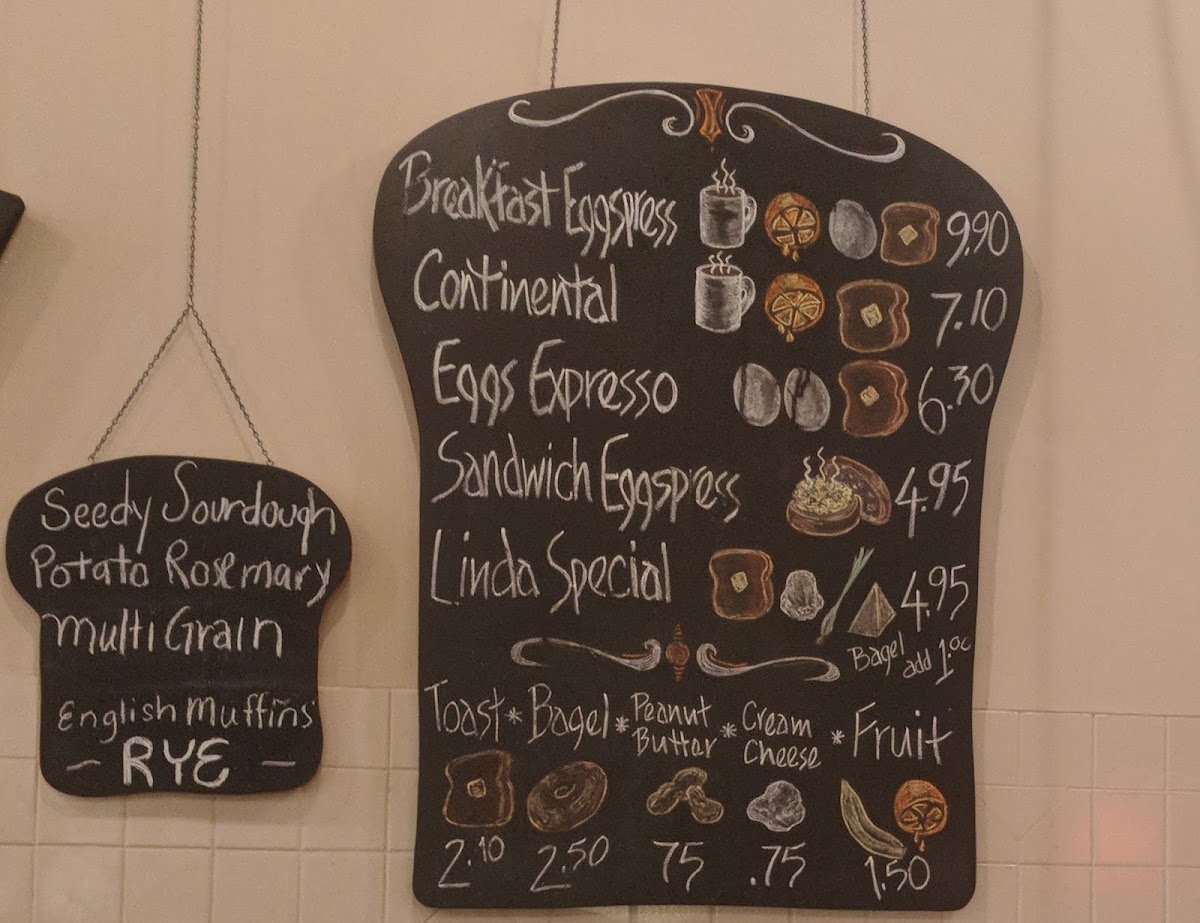 Seedy Sourdough
Potato Rosemary
multi Grain
English Muffins
- RYE -
Breakfast Eggspress 9.90
Continental 7.10
Eggs Expresso 6.30
Sandwich Eggspress 4.95
Linda Special 4.95
Bagel add 1.00
Toast * Bagel * Peanut Butter * Cream Cheese * Fruit
2.10 2.50 75 .75 1.50